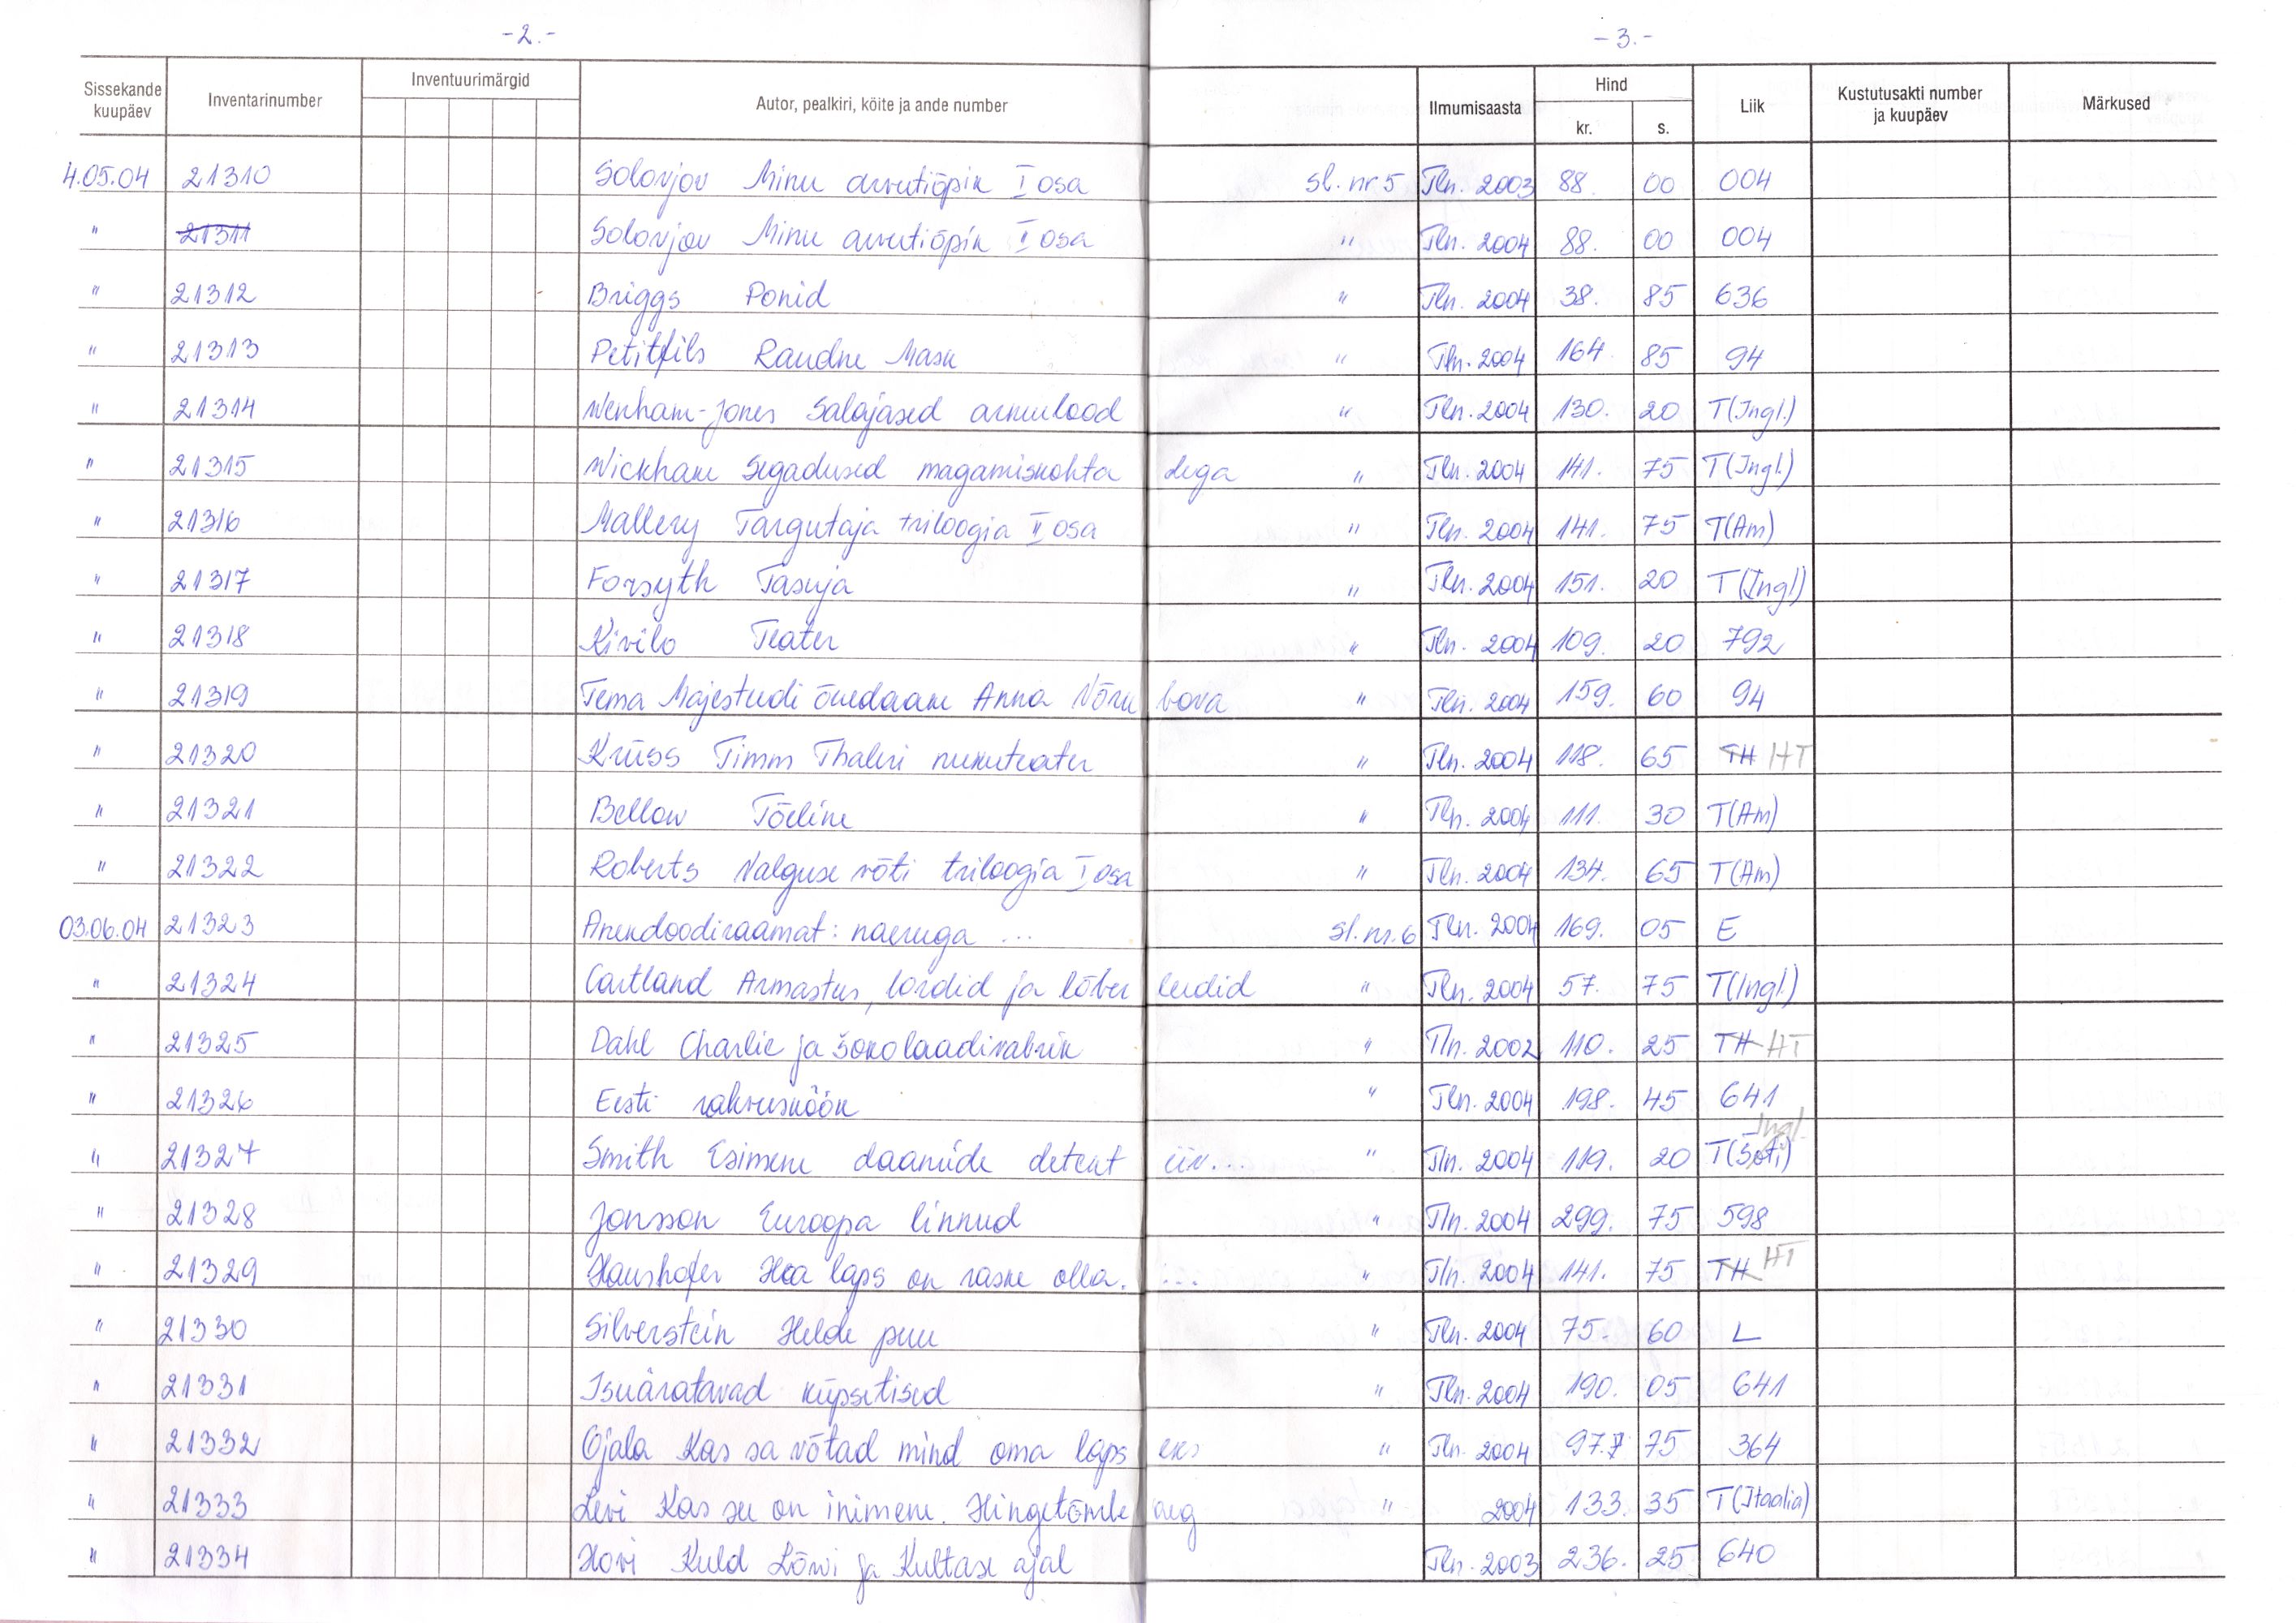 -2.-
-3.-
Sissekande kuupäev Inventarinumber Inventuurimärgid Autor, pealkiri, köite ja ande number Ilmumisaasta Hind kr. s. Liik Kustutusakti number ja kuupäev Märkused
4.05.04 21310 Solovjov Minu arvutiõpik I osa sl. nr 5 Tln. 2003 88. 00 004
" 21311 Solovjov Minu arvutiõpik II osa " Tln. 2004 88. 00 004
" 21312 Briggs Ponid " Tln. 2004 38. 85 636
" 21313 Petitfils Raudne Mask " Tln. 2004 164. 85 94
" 21314 Wenham-Jones Salajased armulood " Tln. 2004 130. 20 T(Ingl.)
" 21315 Wickham Segadused magamiskohta dega " Tln. 2004 141. 75 T(Ingl.)
" 21316 Mallery Targutaja triloogia II osa " Tln. 2004 141. 75 T(Am)
" 21317 Forsyth Tasuja " Tln. 2004 151. 20 T(Ingl)
" 21318 Kivilo Teater " Tln. 2004 109. 20 792
" 21319 Tema Majesteedi õuedaam Anna Võru bova " Tln. 2004 159. 60 94
" 21320 Krüss Timm Thaleri nukuteater " Tln. 2004 118. 65 TH HT
" 21321 Bellow Tõeline " Tln. 2004 111. 30 T(Am)
" 21322 Roberts Valguse võti triloogia I osa " Tln. 2004 134. 65 T(Am)
03.06.04 21323 Anekdoodiraamat: naeruga ... sl. nr. 6 Tln. 2004 169. 05 E
" 21324 Cartland Armastus, lordid ja lõber leedid " Tln. 2004 57. 75 T(Ingl.)
" 21325 Dahl Charlie ja šokolaadivabrik " Tln. 2002 110. 25 TH HT
" 21326 Eesti rahvusköök " Tln. 2004 198. 45 641
" 21327 Smith Esimene daamide detekt iiv... " Tln. 2004 119. 20 T(Šoti) Ingl.
" 21328 Jonsson Euroopa linnud " Tln. 2004 299. 75 598
" 21329 Haushofer Hea laps on raske olla. ... " Tln. 2004 141. 75 TH HT
" 21330 Silverstein Helde puu " Tln. 2004 75. 60 L
" 21331 Isuäratavad küpsetised " Tln. 2004 190. 05 641
" 21332 Ojala Kas sa võtad mind oma laps eks " Tln. 2004 97. 75 364
" 21333 Levi Kas see on inimene. Hingetõmbe aeg " 2004 133. 35 T(Itaalia)
" 21334 Hovi Kuld Lõwi ja Kultase ajal Tln. 2003 236. 25 640